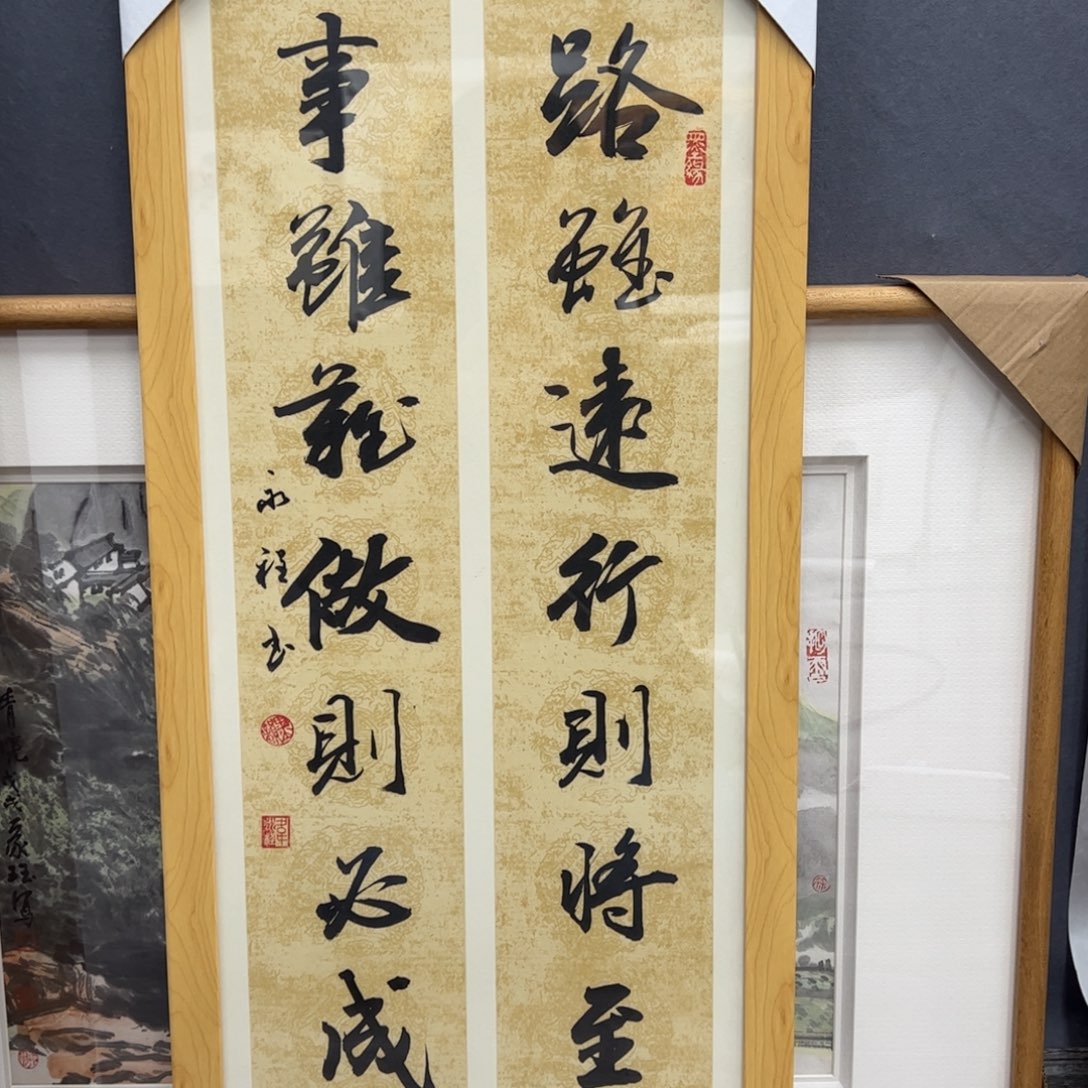 路雖遠行則將至
事雖難做則必成
永程书